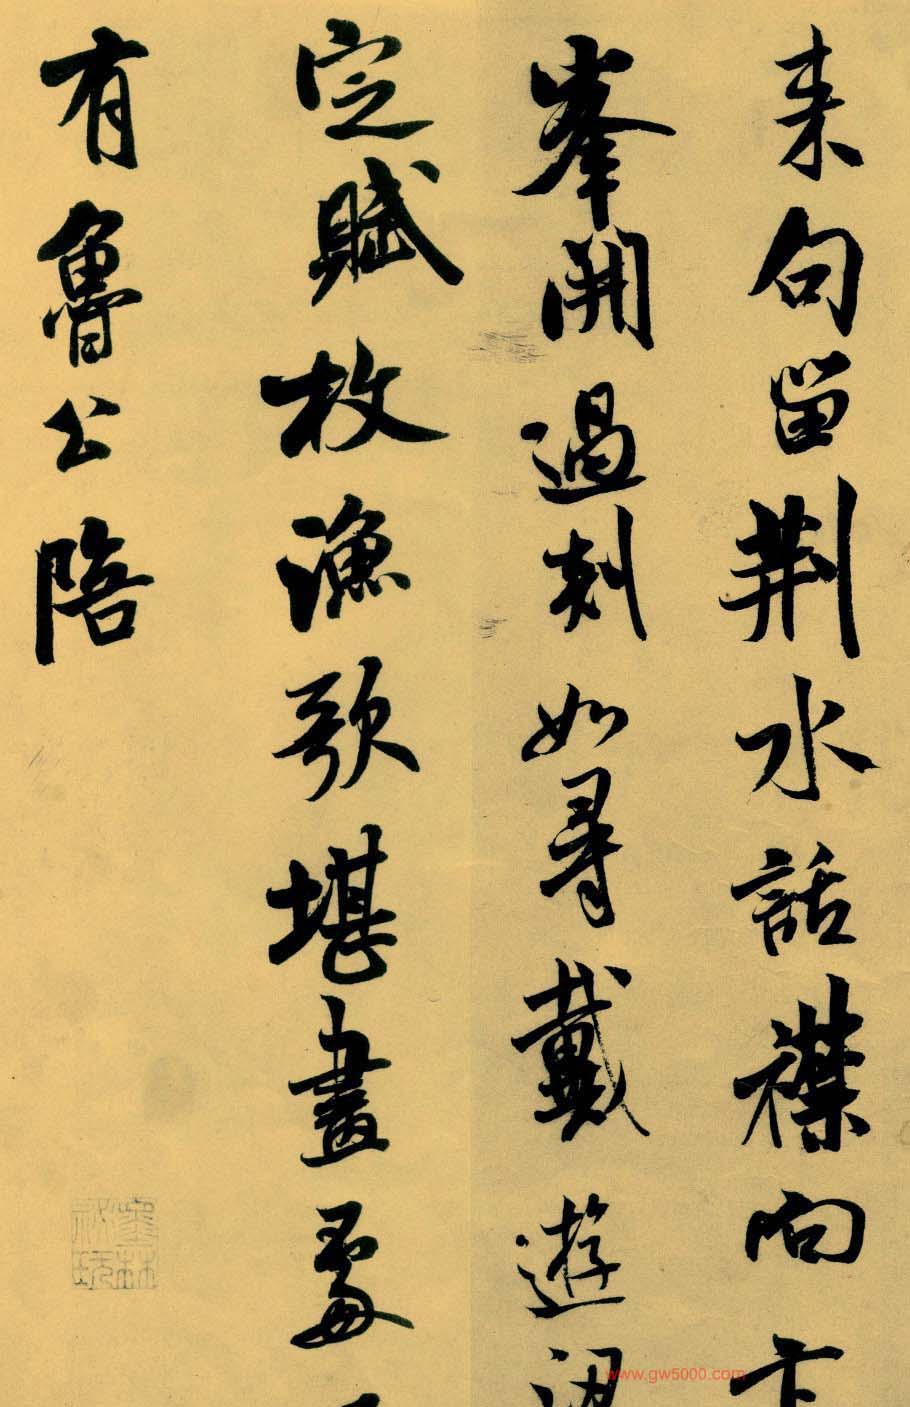 来句留荆水話襟向卞
峯開過剡如尋戴遊
定賦枚漁歌堪畫處
有魯公陪
墨林
祕玩
www.gw5000.com